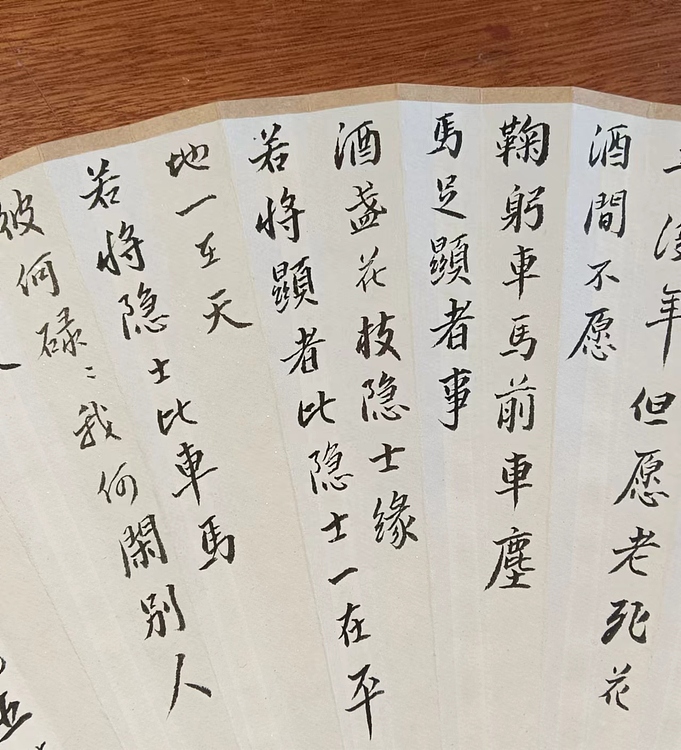 年但愿老死花
酒間不愿
鞠躬車馬前車塵
馬足顯者事
酒盞花枝隐士緣
若将顯者比隐士一在平
地一在天
若将隐士比車馬
彼何碌々我何閑别人